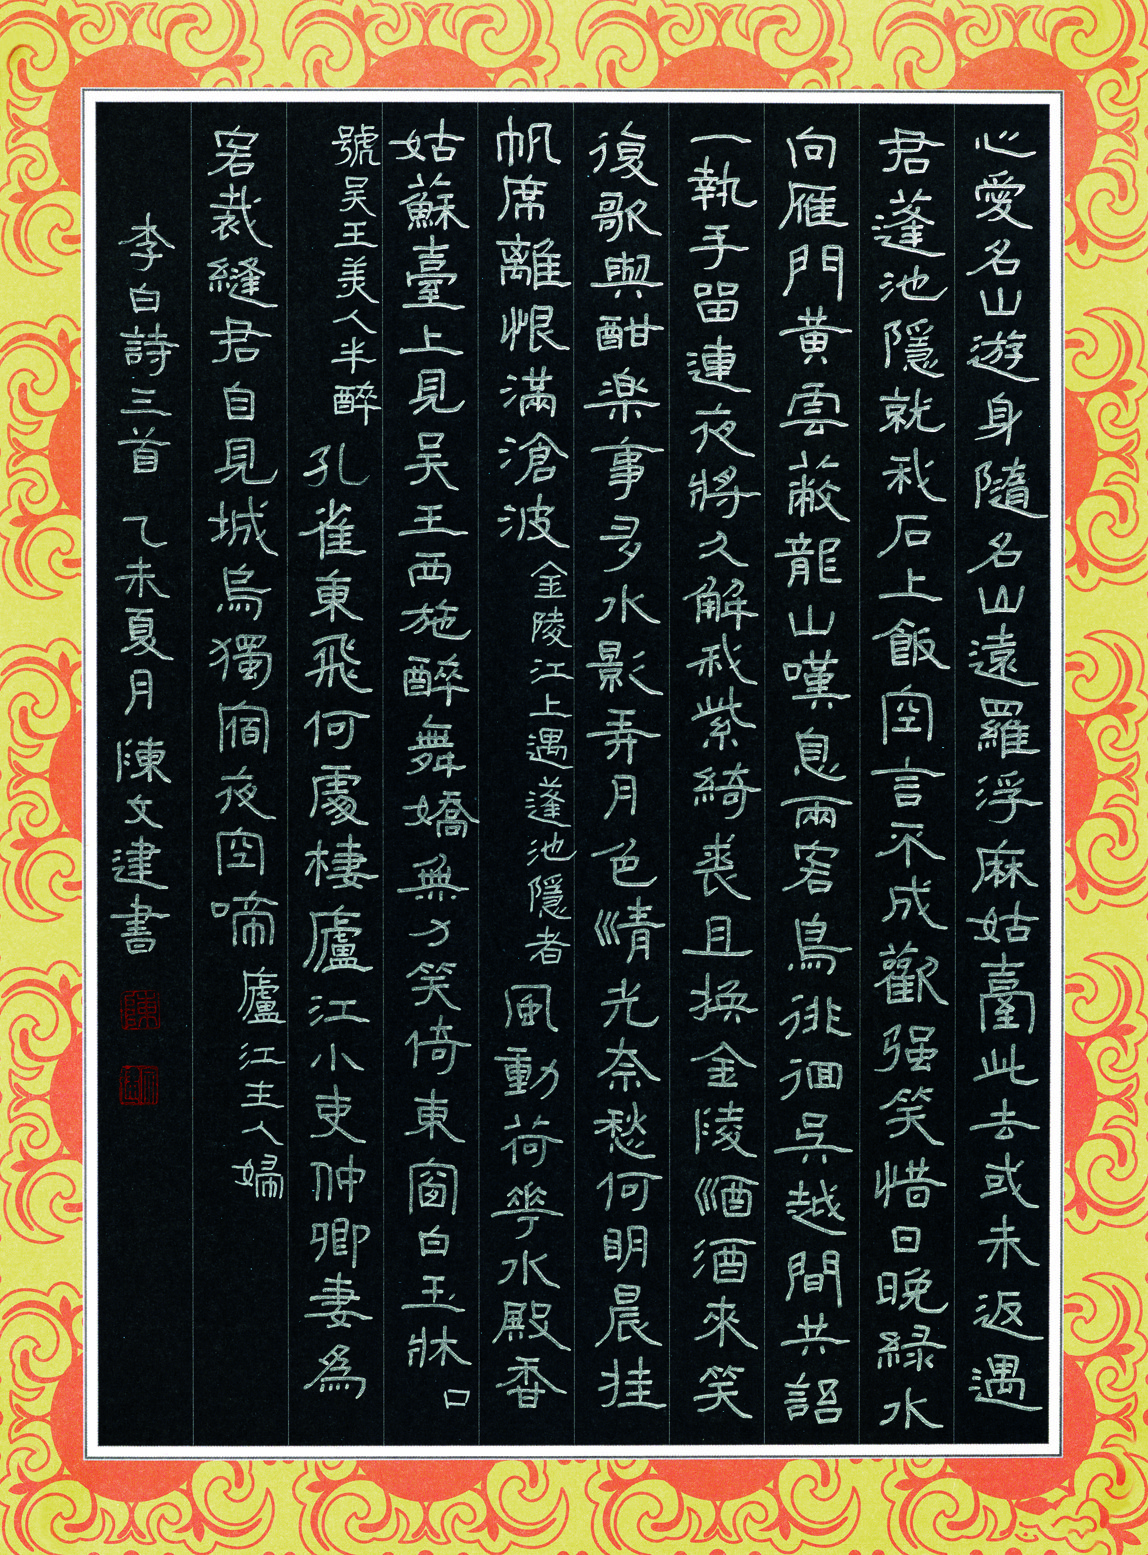 心愛名山遊身隨名山遠羅浮麻姑臺此去或未返遇
君蓬池隱就我石上飯空言不成歡强笑惜日晚綠水
向雁門黃雲蔽龍山嘆息兩客鳥徘徊吳越間共語
一執手留連夜將久解我紫綺裘且換金陵酒酒來笑
復歌興酣楽事多水影弄月色清光奈愁何明晨挂
帆席離恨滿滄波 金陵江上遇蓬池隱者 風動荷花水殿香
姑蘇臺上見吳王西施醉舞嬌無力笑倚東窗白玉牀 口
號吳王美人半醉 孔雀東飛何處棲廬江小吏仲卿妻為
客裁縫君自見城烏獨宿夜空啼 廬江主人婦
李白詩三首 乙未夏月 陳文建書